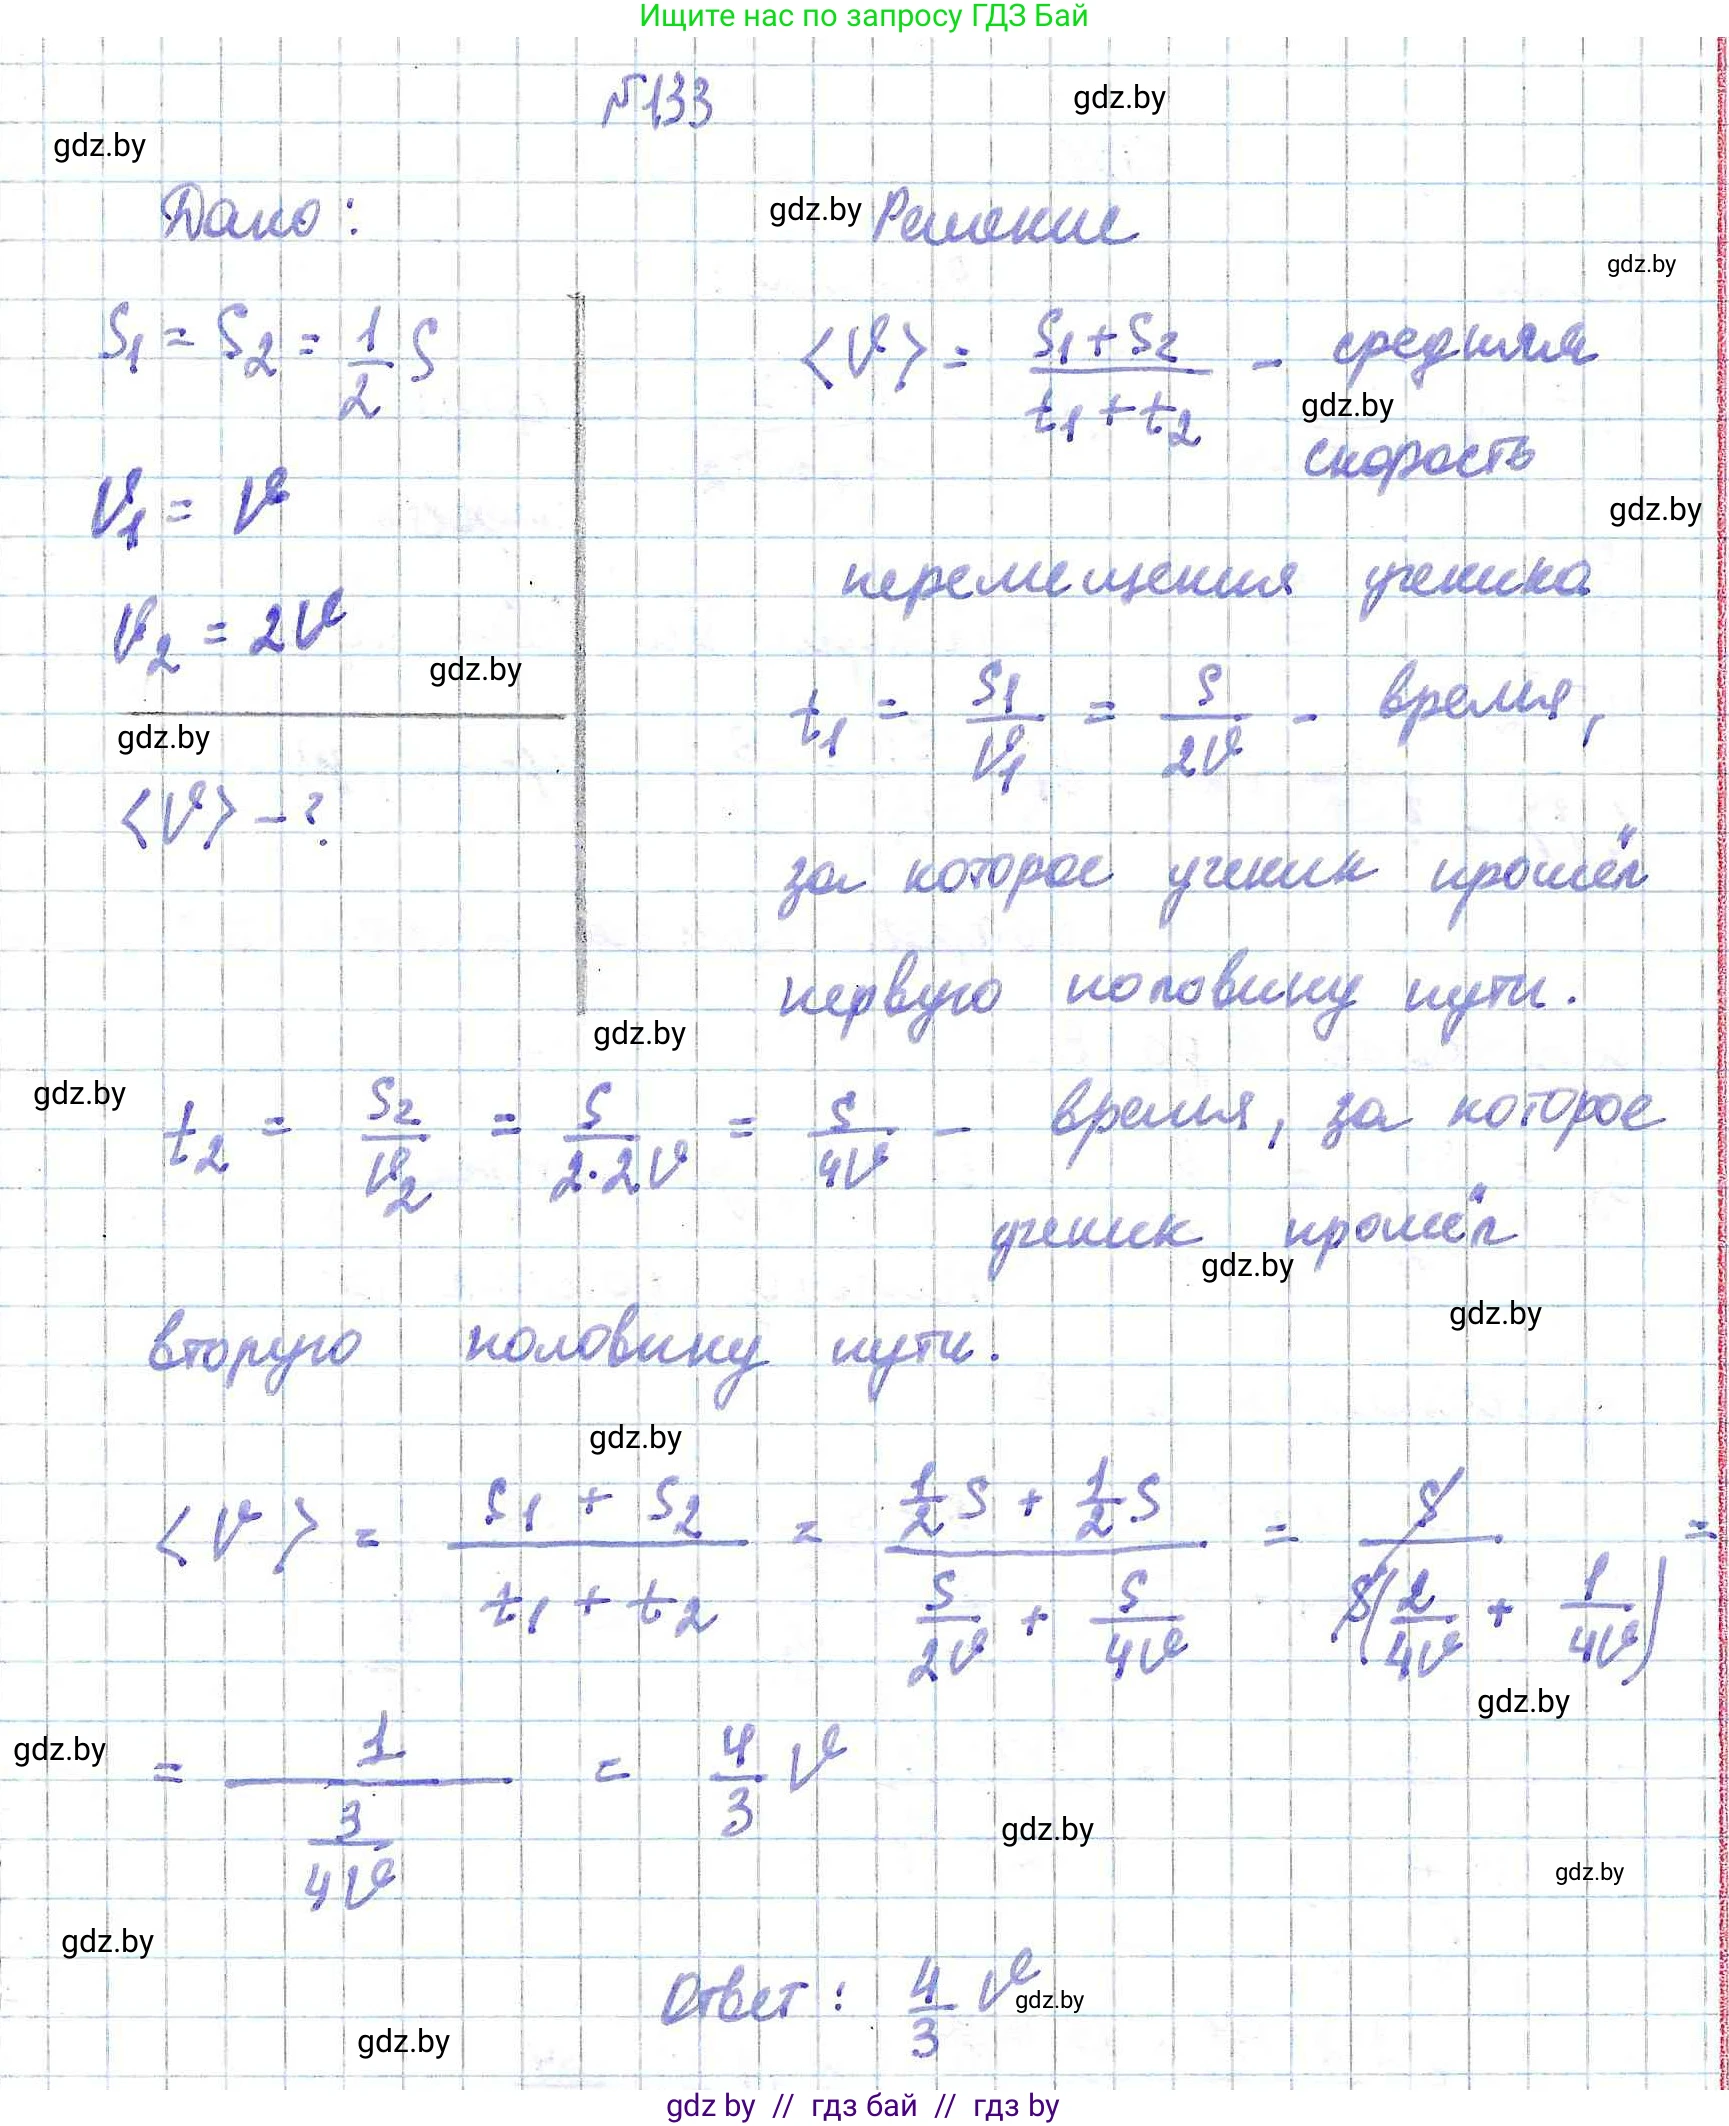 Ищите нас по запросу ГДЗ Бай
№133
gdz.by
gdz.by
Дано:
gdz.by
Решение
gdz.by
S₁ = S₂ = 1/2 S
<v> = (S₁ + S₂)/(t₁ + t₂) - средняя
gdz.by
скорость
v₁ = v
gdz.by
перемещения ученика
v₂ = 2v
gdz.by
t₁ = S₁/v₁ = S/2v - время,
gdz.by
<v> - ?
за которое ученик прошёл
первую половину пути.
gdz.by
gdz.by
t₂ = S₂/v₂ = S/(2·2v) = S/4v - время, за которое
ученик прошёл
gdz.by
gdz.by
вторую половину пути.
gdz.by
<v> = (S₁ + S₂)/(t₁ + t₂) = (1/2 S + 1/2 S)/(S/2v + S/4v) = S/(S(2/4v + 1/4v)) =
gdz.by
gdz.by
= 1/(3/4v) = 4/3 v
gdz.by
gdz.by
gdz.by
Ответ: 4/3 v
gdz.by
gdz.by
gdz by // гдз бай // гдз by